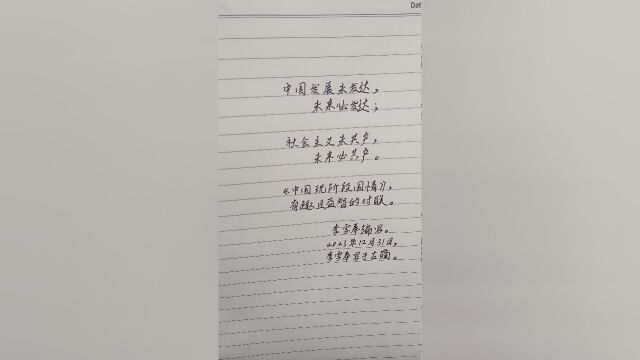 Dat
中国发展未发达，
未来必发达；
社会主义未共产，
未来必共产。
《中国现阶段国情》，
有趣且益智的对联。
李宇奉编写。
2023年12月31日，
李宇奉写于古蔺。